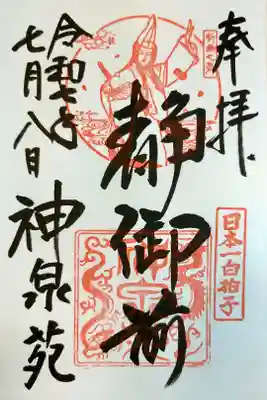 奉拝
日本一白拍子
静御前
神泉苑
令和七年
七月八日